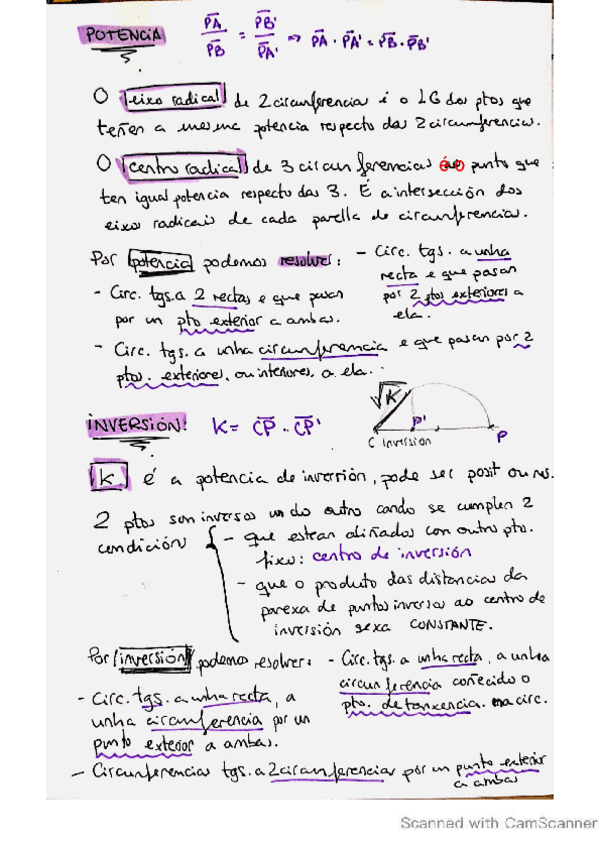 POTENCIA
PA/PB = PB'/PA' => PA · PA' = PB · PB'
O eixo radical de 2 circunferencias é o LG dos ptos que
teñen a mesma potencia respecto das 2 circunferencias.
O centro radical de 3 circunferencias é o punto que
ten igual potencia respecto das 3. É a intersección dos
eixos radicais de cada parella de circunferencias.
Por potencia podemos resolver:
- Circ. tgs. a 2 rectas e que pasan
por un pto exterior a ambas.
- Circ. tgs. a unha
recta e que pasan
por 2 ptos exteriores a
ela.
- Circ. tgs. a unha circunferencia e que pasan por 2
ptos. exteriores, ou interiores, a ela.
INVERSIÓN: K = CP · CP'
√K
P'
C inversión
P
K é a potencia de inversión, pode ser posit ou neg.
2 ptos son inversos un do outro cando se cumplen 2
condición
- que estean aliñados con outro pto.
fixo: centro de inversión
- que o produto das distancias da
parexa de puntos inversos ao centro de
inversión sexa CONSTANTE.
Por inversión podemos resolver:
- Circ. tgs. a unha recta, a
unha circunferencia por un
punto exterior a ambas.
- Circ. tgs. a unha recta, a unha
circunferencia coñecido o
pto. de tanxencia. na circ.
- Circunferencias tgs. a 2 circunferencias por un punto exterior
a ambas
Scanned with CamScanner